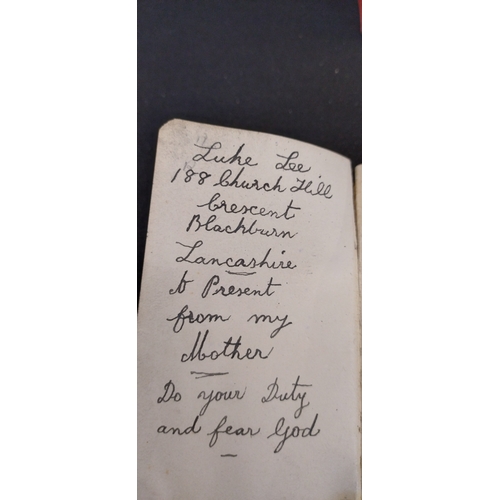 Luke Lee
188 Church Hill
Crescent
Blackburn
Lancashire
A Present
from my
Mother
Do your Duty
and fear God